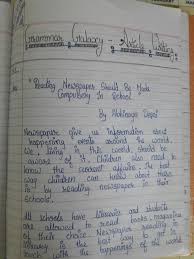 Grammar Galaxy - Article Writing
"Reading Newspaper Should Be Made
Compulsory In School
By Abhinaya
Newspaper give us information about
happening events around the world.
We living in this world, should be
aware of it. Children also need to
know the current affairs. The best
way children can know about them
is by reading newspaper in their
schools.
All schools have libraries and students
are allowed to read books, magazines
of their choice. Newspaper reading in
library is the best way to get in
touch with the happenings of the world